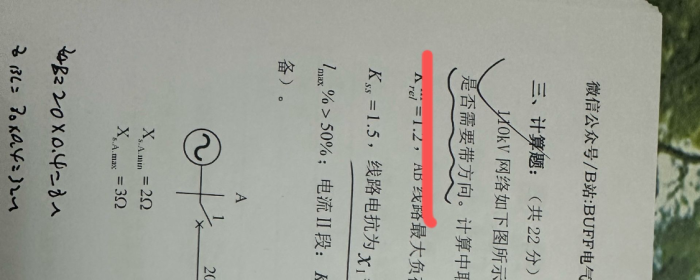 微信公众号/B站:BUFF电
三、计算题：（共 22 分）
110kV 网络如下图所示
是否需要带方向。计算中取
rel =1.2，AB 线路最大负
K_ss =1.5，线路电抗为 x₁
I_max %>50%；电流Ⅱ段：K
备）。
A
1
20
X_s.A.min =2Ω
X_s.A.max =3Ω
=20×0.4=8
=30×0.4=12